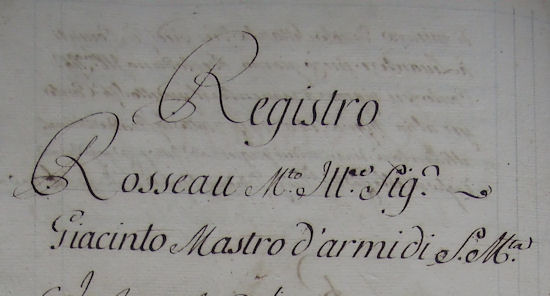 Registro
Rosseau M.to Ill.re Sig.r
Giacinto Mastro d'armi di S. M.tà